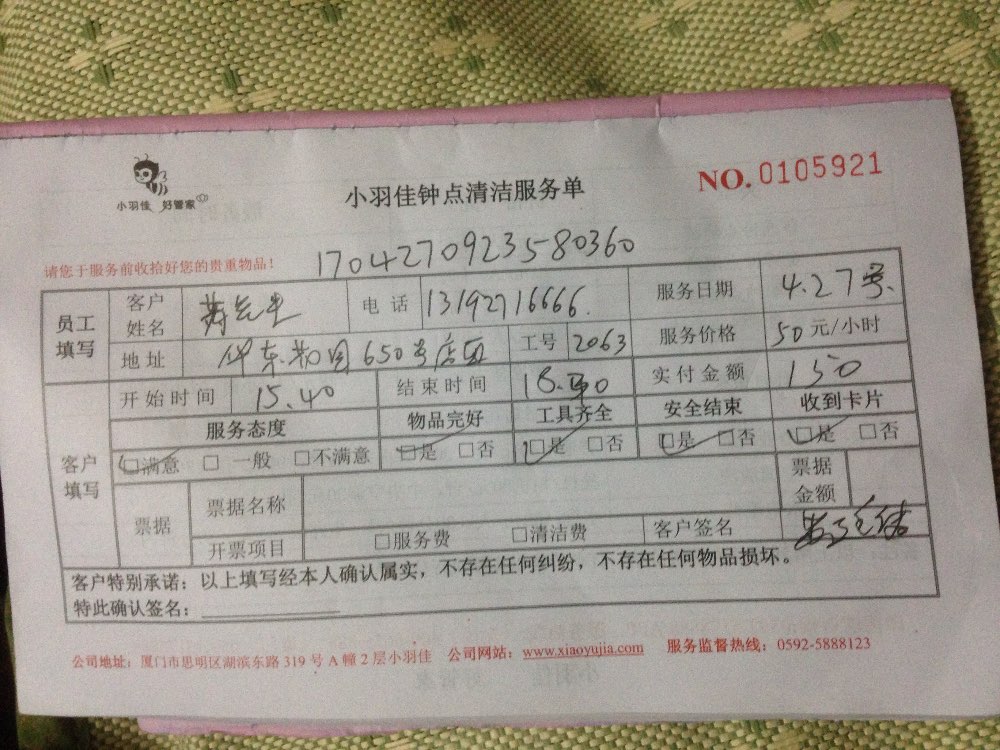 小羽佳 好管家
小羽佳钟点清洁服务单
NO. 0105921
请您于服务前收拾好您的贵重物品！
17042709235 80360
员工填写 客户姓名 先生 电话 13192716666 服务日期 4.27号
地址 650号店面 工号 2063 服务价格 50元/小时
客户填写 开始时间 15.40 结束时间 实付金额 150
服务态度 物品完好 工具齐全 安全结束 收到卡片
☑满意 □一般 □不满意 ☑是 □否 ☑是 □否 ☑是 □否 ☑是 □否
票据 票据名称 票据金额
开票项目 □服务费 □清洁费 客户签名
客户特别承诺：以上填写经本人确认属实，不存在任何纠纷，不存在任何物品损坏。
特此确认签名：
公司地址：厦门市思明区湖滨东路 319 号 A 幢 2 层小羽佳 公司网站：www.xiaoyujia.com 服务监督热线：0592-5888123